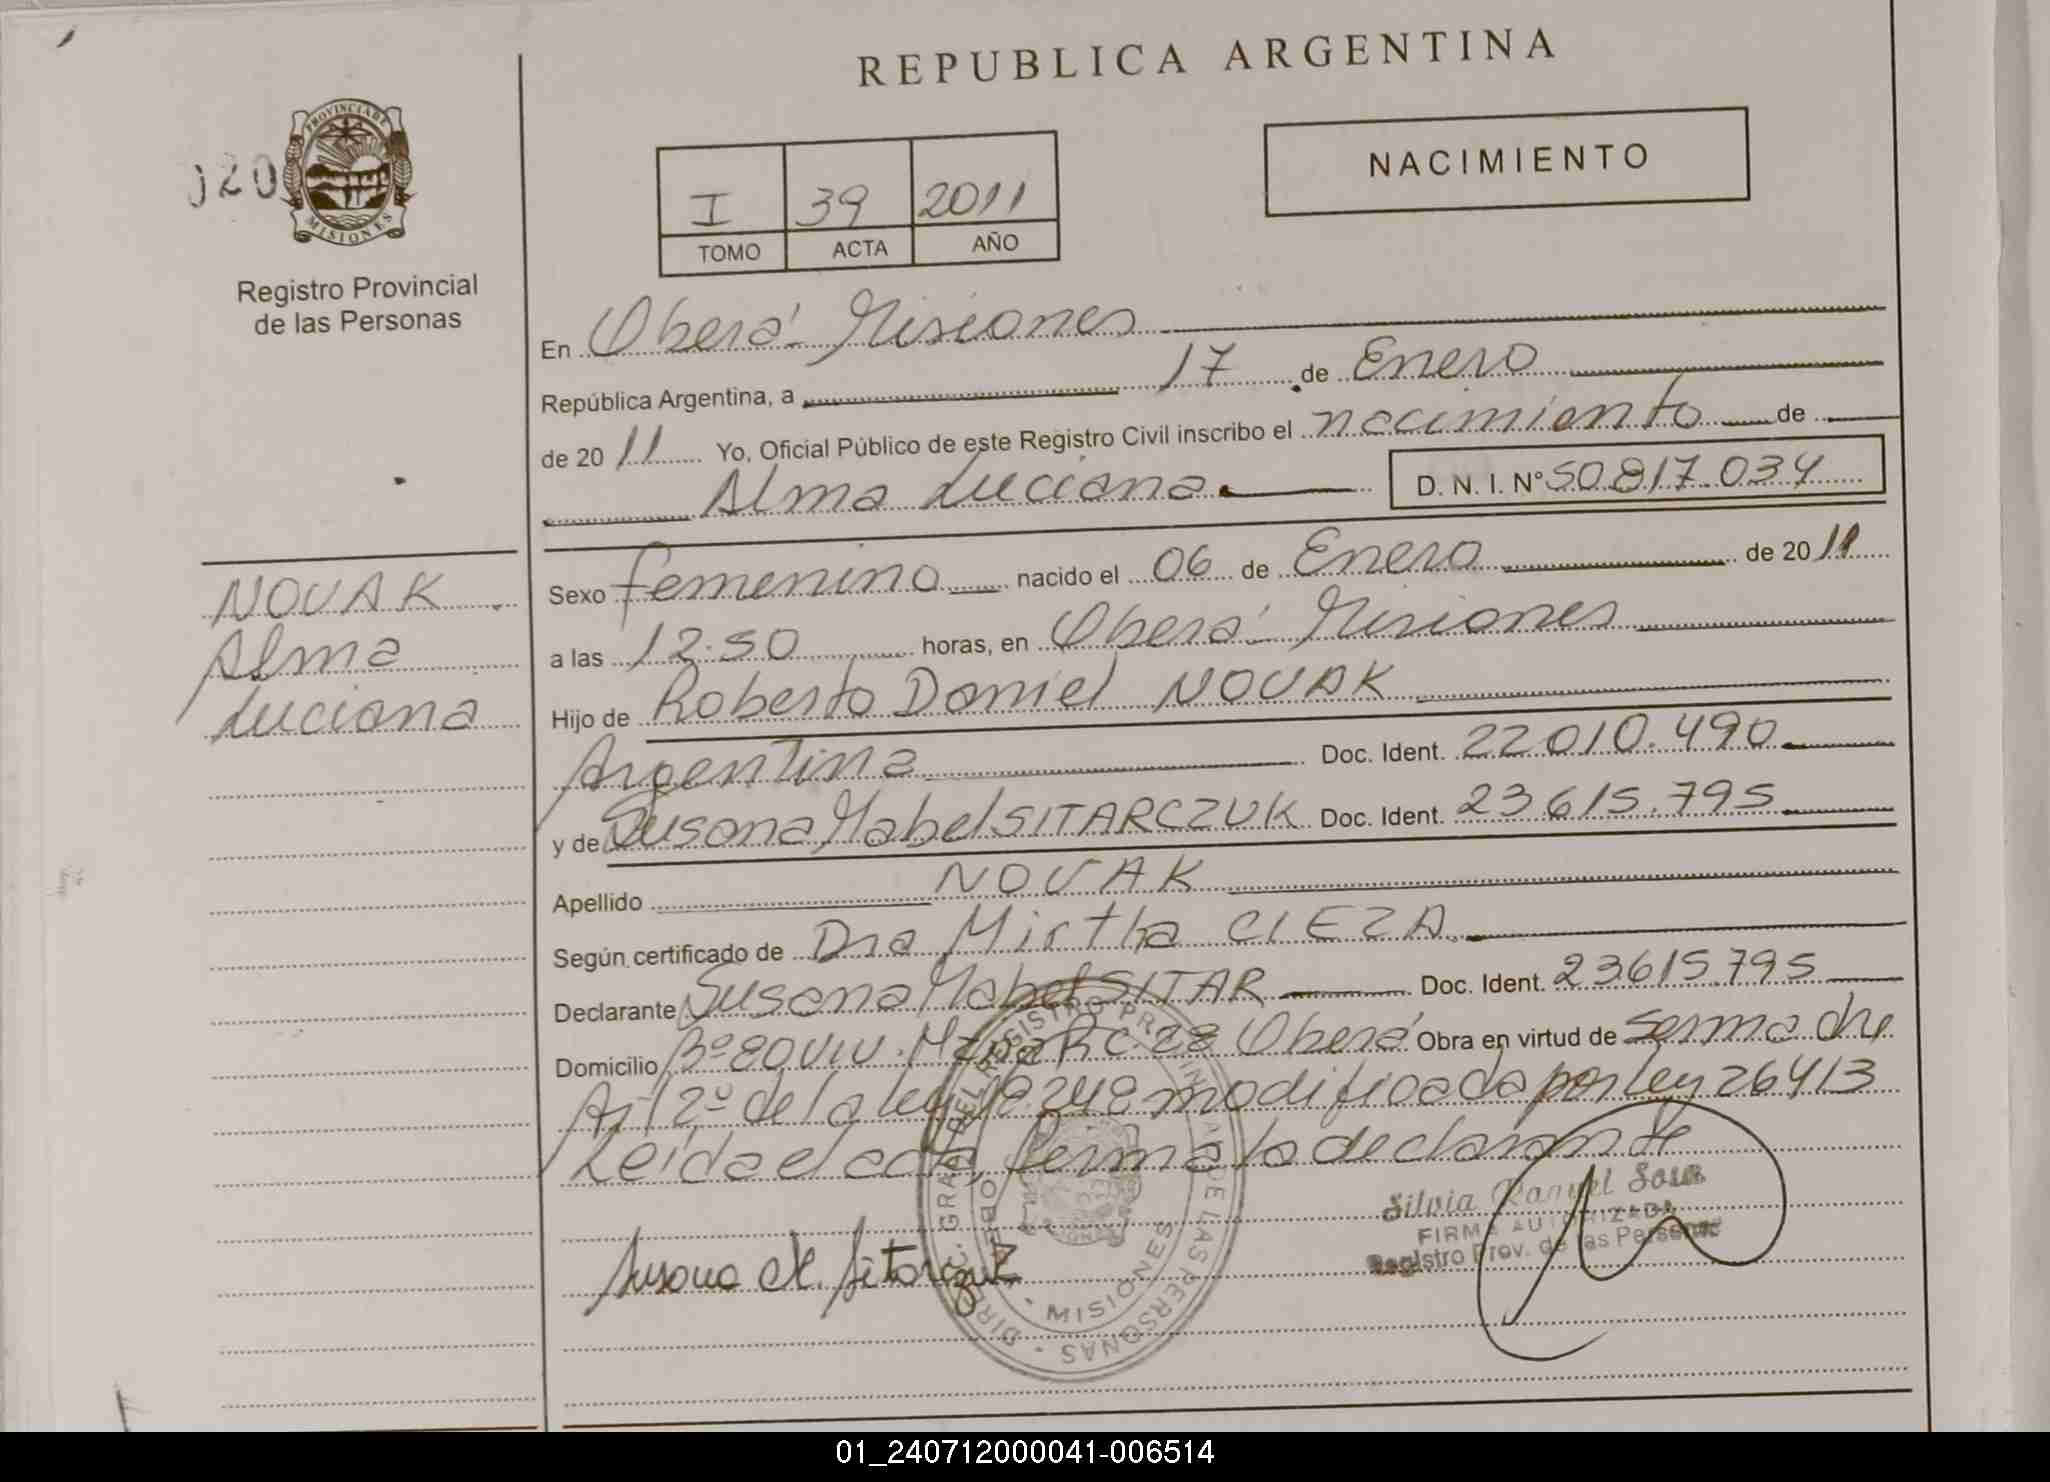 REPUBLICA ARGENTINA
PROVINCIA DE
MISIONES
Registro Provincial
de las Personas
I 39 2011
TOMO ACTA AÑO
NACIMIENTO
En Oberá Misiones
República Argentina, a 17 de Enero
de 2011 Yo, Oficial Público de este Registro Civil inscribo el nacimiento de
Alma Luciana D. N. I. N° 50.817.034
NOVAK
Alma
Luciana
Sexo femenino nacido el 06 de Enero de 2011
a las 12.50 horas, en Oberá Misiones
Hijo de Roberto Daniel NOVAK
Argentina Doc. Ident. 22010.490
y de Susana Mabel SITARCZUK Doc. Ident. 23615.795
Apellido NOVAK
Según certificado de Dra Mirtha CIEZA
Declarante Susana Mabel SITAR Doc. Ident. 23615.795
Domicilio Bº 80 VIV. C. 28 Oberá Obra en virtud de ser madre
Art 2º de la ley 18.248 modificada por ley 26413
Leída el acta, firma la declarante
Silvia Raquel Sosa
FIRMA AUTORIZADA
Registro Prov. de las Personas
Susana M. Sitarczuk
DIREC. GRAL. DEL REGISTRO PROVINCIAL DE LAS PERSONAS
MISIONES
01_240712000041-006514